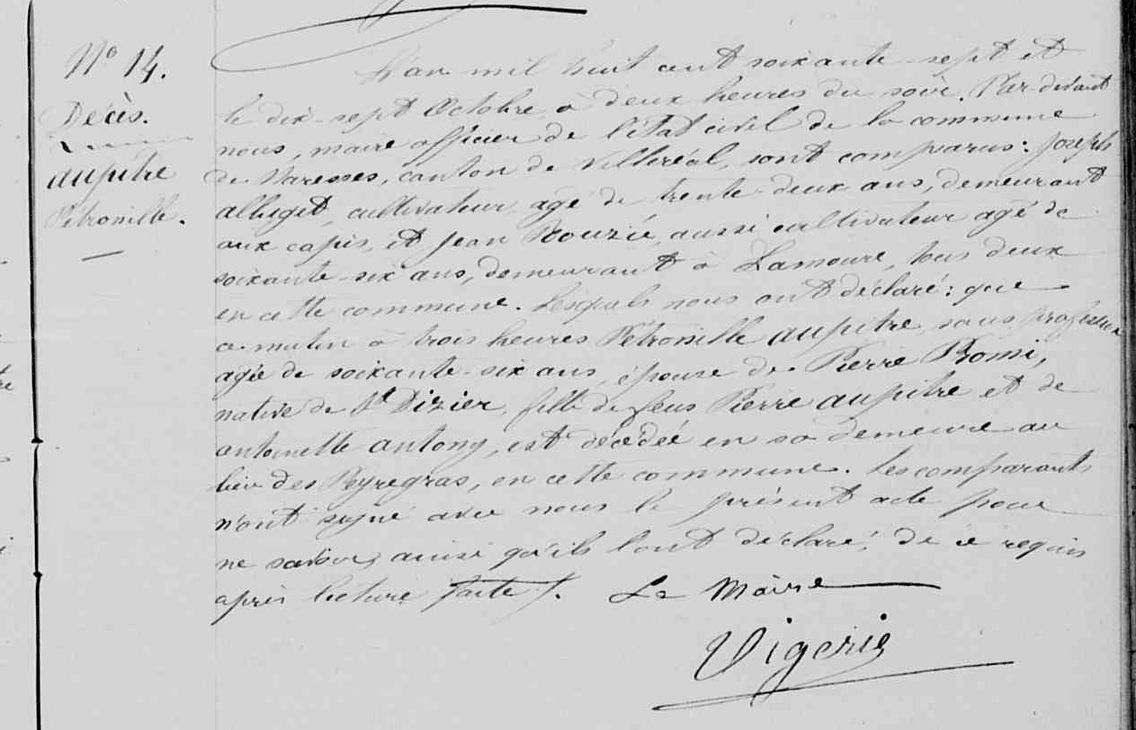 N° 14.
Décès.
aupitre
Pétronille.
L'an mil huit cent soixante-sept et
le dix-sept Octobre à deux heures du soir. Par devant
nous, maire officier de l'état civil de la commune
de Naresses, canton de Villeréal, sont comparus: Joseph
albuget, cultivateur, agé de trente-deux ans, demeurant
aux capis, et Jean Rouzié, aussi cultivateur agé de
soixante-six ans, demeurant à Lamoure, tous deux
en cette commune. Lesquels nous ont déclaré: que
ce matin à trois heures Pétronille aupitre, sans profession
agée de soixante-six ans, épouse de Pierre Romi,
native de St Dizier, fille de feus Pierre aupitre et de
antoinette antony, est décédée en sa demeure au
lieu des Peyregras, en cette commune. Les comparants
n'ont signé avec nous le présent acte pour
ne savoir, ainsi qu'ils l'ont déclaré, de ce requis
après lecture faite. Le Maire
Vigerie